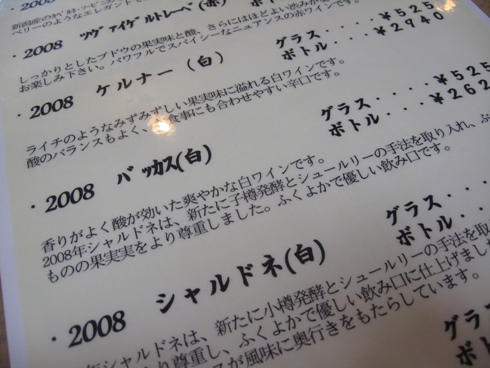 ・2008 ツヴァイゲルトレーベ(赤)
しっかりとしたブドウの果実味と酸、さらにはほどよい渋み
お楽しみ下さい。パワフルでスパイシーなニュアンスのホワインです。
グラス・・・・¥525
ボトル・・・¥2940
・2008 ケルナー(白)
ライチのようなみずみずしい果実味に溢れる白ワインです。
酸のバランスもよく、お食事にも合わせやすい辛口です。
グラス・・・・¥525
ボトル・・・¥262
・2008 バッカス(白)
香りがよく酸が効いた爽やかな白ワインです。
2008年シャルドネは、新たに子樽発酵とシュールリーの手法を取り入れ、ふ
ものの果実実をより尊重しました。ふくよかで優しい飲み口です。
グラス・・・・
ボトル・・・
・2008 シャルドネ(白)
年シャルドネは、新たに小樽発酵とシュールリーの手法を取
より尊重し、ふくよかで優しい飲み口に仕上げました
スが風味に奥行きをもたらしています。
グラス・・
ボトル